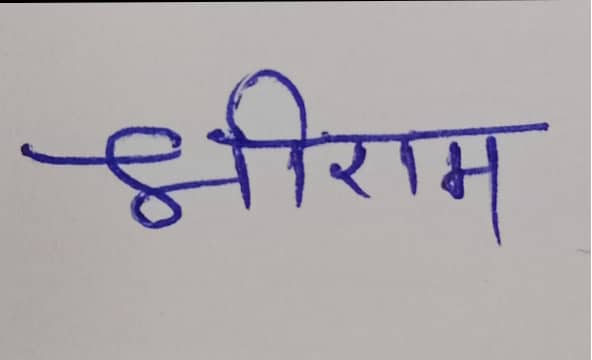 श्रीराम